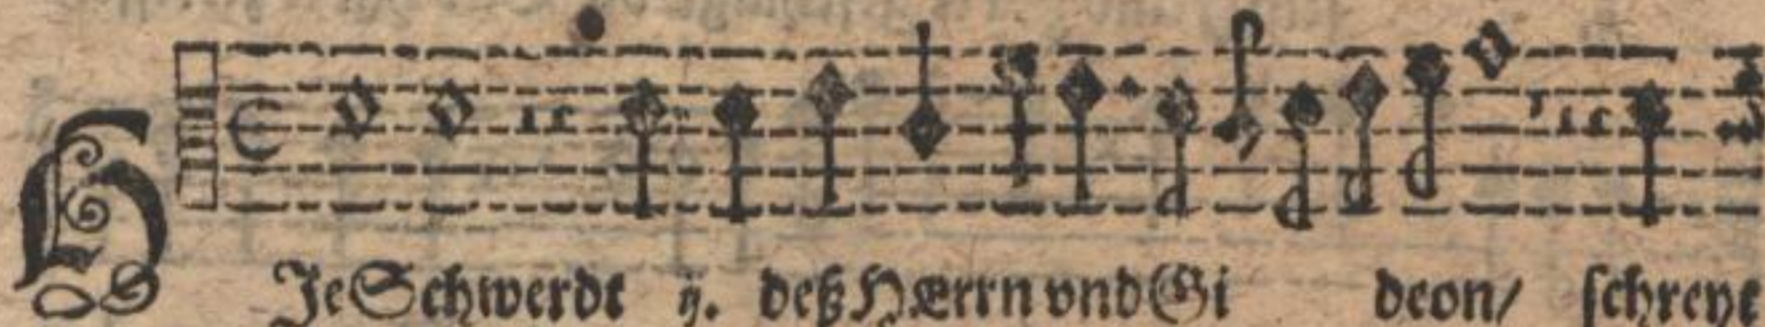 HJe Schwerdt ij. deß HErrn vnd Gi deon/ schreyt